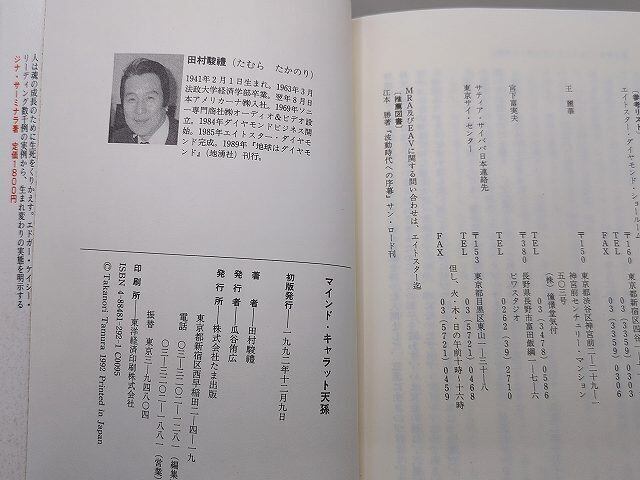 (参考リスト)
エイトスター・ダイヤモンド・ショールーム
〒160 東京都新宿区四谷
TEL 03(3359)
FAX 03(3359)0306
王麗華
〒150 東京都渋谷区神宮前二―二十九―
神宮前センチュリー・マンション
五〇三号
(株)憧憬堂気付
TEL 03(3478)0586
宮下富実夫
〒380 長野県長野市富田飯綱一―七―六
ビワスタジオ
TEL 0262(39)2710
サティア サイババ日本連絡先
東京サイ・センター
〒153 東京都目黒区東山一―三十八
TEL 03(5721)0468
但し、火・木・日の午前十時〜十六時
FAX 03(5721)0459
MRA及びEAVに関する問い合わせは、エイトスター迄
〔推薦図書〕
江本 勝著『波動時代への序幕』サン・ロード刊
田村駿禮(たむら たかのり)
1941年2月1日生まれ。1963年3月
法政大学経済学部卒業。翌年8月日
本アメリカーナ㈱入社。1969年ソニ
ー専門商社㈱オーディオ&ビデオ設
立。1984年ダイヤモンドビジネス開
始。1985年エイトスター・ダイヤモ
ンド完成。1989年『地球はダイヤモ
ンド』(地湧社)刊行。
マインド・キャラット天孫
初版発行―一九九二年十二月九日
著 者―田村駿禮
発行者―瓜谷侑広
発行所―株式会社たま出版
東京都新宿区西早稲田二―四―一九
電話 〇三―三二〇二―一二八一(編集
〇三―三二〇二―一八八一(営業)
振替 東京三―九四八〇四
印刷所―東洋経済印刷株式会社
ISBN 4-88481-292-1 C0095
© Takanori Tamura 1992 Printed in Japan
人は魂の成長のために生死をくりかえす。エドガー・ケイシー・
リーディング数千例の実例から、生まれ変わりの実態を明示する
ジナ・サーミナラ著 定価1800円